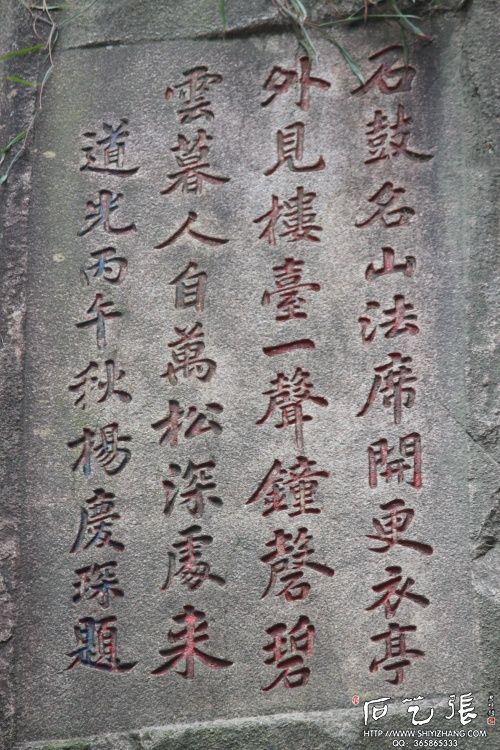 石鼓名山法席開更衣亭
外見樓臺一聲鐘磬碧
雲暮人自萬松深處来
道光丙午秋楊慶琛題
石艺張
HTTP://WWW.SHIYIZHANG.COM
QQ: 365865333